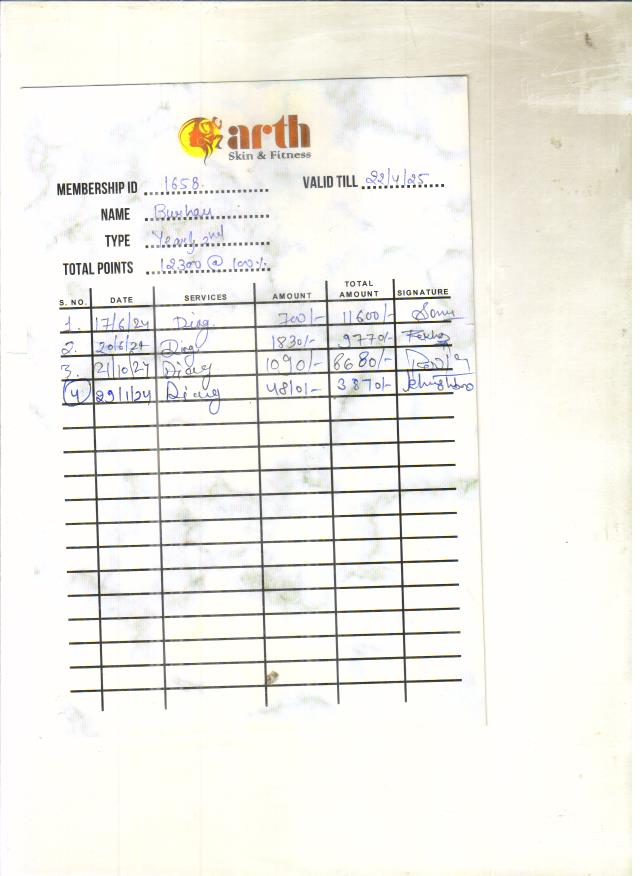 arth
Skin & Fitness
MEMBERSHIP ID 1658 VALID TILL 22/4/25
NAME Burhan
TYPE Yearly 2nd
TOTAL POINTS 12300 @ 100%
S. NO. DATE SERVICES AMOUNT TOTAL AMOUNT SIGNATURE
1. 17/6/24 700/- 11600/- Sonu
2. 20/6/24 1830/- 9770/-
3. 21/10/24 Diary 1090/- 8680/-
4 29/1/24 Diary 4810/- 3870/-